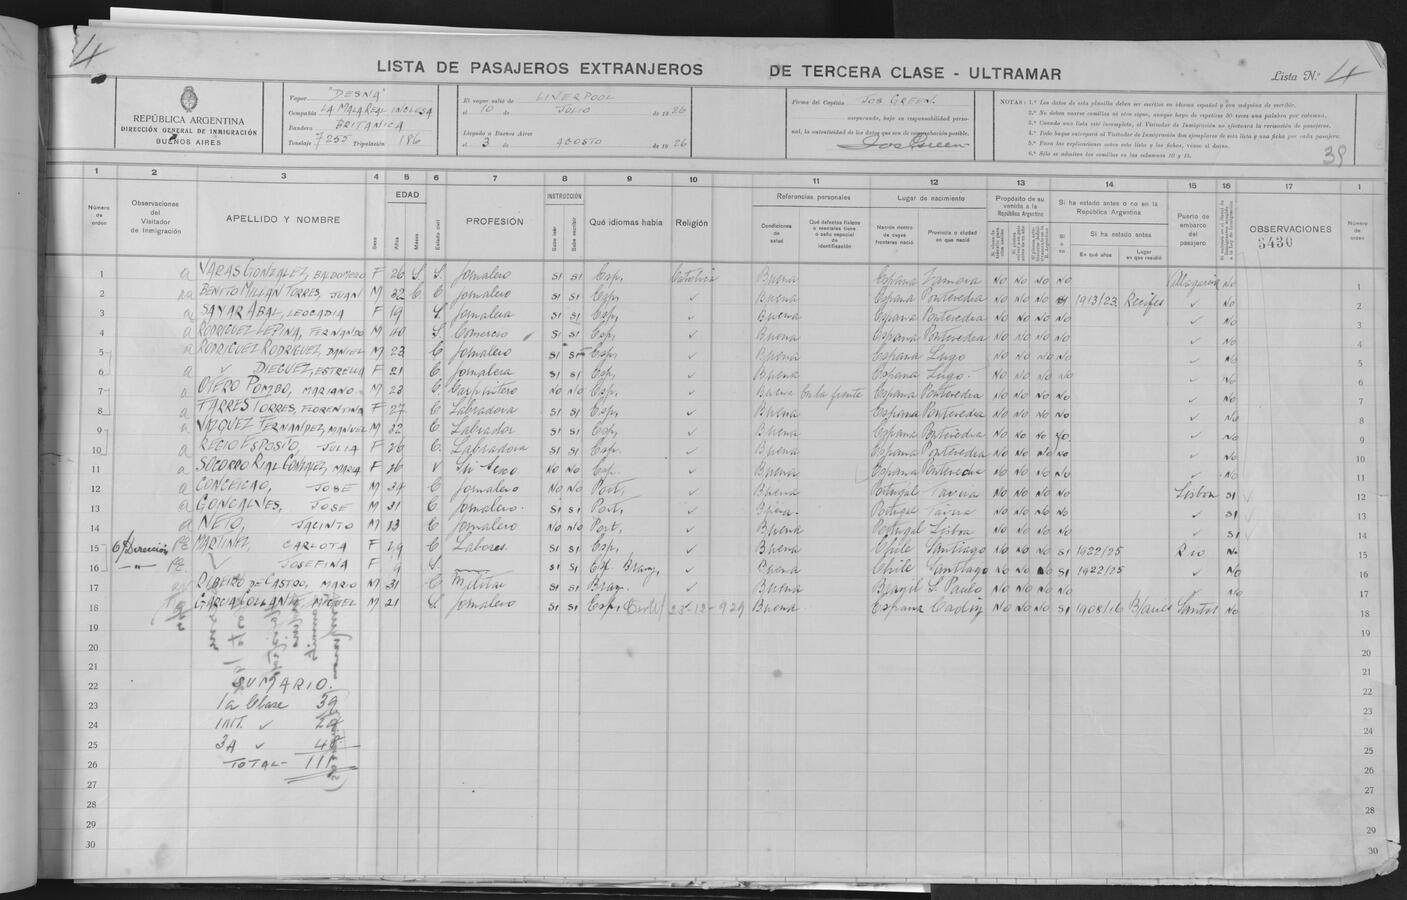 4
LISTA DE PASAJEROS EXTRANJEROS DE TERCERA CLASE - ULTRAMAR
Lista N.° 4
REPÚBLICA ARGENTINA
DIRECCIÓN GENERAL DE INMIGRACIÓN
BUENOS AIRES
Vapor "DESNA"
Compañía LA MALA REAL INGLESA
Bandera BRITANICA
Tonelaje 7255 Tripulación 186
El vapor salió de LIVERPOOL
el 10 de JULIO de 1926
Llegado a Buenos Aires
el 3 de AGOSTO de 1926
Firma del Capitán JOS GREEN.
asegurando, bajo su responsabilidad perso-
nal, la autenticidad de los datos que son de comprobación posible.
Jos Green
NOTAS: 1.ª Los datos de esta planilla deben ser escritos en idioma español y con máquina de escribir.
2.ª No deben usarse comillas ni otro signo, aunque haya de repetirse 30 veces una palabra por columna.
3.ª Cuando una lista esté incompleta, el Visitador de Inmigración no efectuará la revisación de pasajeros.
4.ª Todo buque entregará al Visitador de Inmigración dos ejemplares de esta lista y una ficha por cada pasajero.
5.ª Para las explicaciones sobre esta lista y las fichas, véase al dorso.
6.ª Sólo se admiten las comillas en las columnas 10 y 15.
39
1 2 3 4 5 6 7 8 9 10 11 12 13 14 15 16 17 1
Número de orden
Observaciones del Visitador de Inmigración
APELLIDO Y NOMBRE
Sexo
EDAD
Años
Meses
Estado civil
PROFESIÓN
INSTRUCCIÓN
Sabe leer
Sabe escribir
Qué idiomas habla
Religión
Referencias personales
Condiciones de salud
Qué defectos físicos o mentales tiene o seña especial de identificación
Lugar de nacimiento
Nación dentro de cuyas fronteras nació
Provincia o ciudad en que nació
Propósito de su venida a la República Argentina
Si ha estado antes o no en la República Argentina
Si ha estado antes
En qué años
Lugar en que residió
Puerto de embarco del pasajero
OBSERVACIONES
5430
Número de orden
1 a VARAS GONZALEZ, BALDOMERO F 26 S. S. Jornalero SI SI Esp, Católica Buena España Zamora No No No No No 1
2 BENITO MILLAN TORRES, JUAN M 32 C C Jornalero SI SI Esp, ✓ Buena España Pontevedra No No No SI 1913/23 Recifes ✓ No 2
3 a SAYAR ABAL, LEOCADIA F 19 S Jornalera SI SI Esp, ✓ Buena España Pontevedra No No No No ✓ No 3
4 a RODRIGUEZ LEPINA, FERNANDO M 40 S. Comercio SI SI Esp, ✓ Buena España Pontevedra No No No No ✓ No 4
5 a RODRIGUEZ RODRIGUEZ, DANIEL M 23 C Jornalero SI SI Esp, ✓ Buena España Lugo No No No No ✓ No 5
6 a ✓ DIEGUEZ, ESTRELLA F 21 C. Jornalera SI SI Esp, ✓ Buena España Lugo. No No No No ✓ No 6
7 a OTERO POMBO, MARIANO M 23 S. Carpintero No No Esp, ✓ Buena En la frente España Pontevedra No No No No ✓ No 7
8 a TARRES TORRES, FLORENTINA F 27 C Labradora SI SI Esp, ✓ Buena España Pontevedra No No No No ✓ No 8
9 a VAZQUEZ FERNANDEZ, MANUEL M 32 C Labrador SI SI Esp, ✓ Buena España Pontevedra No No No No ✓ No 9
10 a REGIO ESPOSIO, JULIA F 26 C. Labradora SI SI Esp. ✓ Buena España Pontevedra No No No No ✓ No 10
11 a SOCORRO RIAL GONZALEZ, MARIA F 26 V Su Sexo No No Esp. ✓ Buena España Pontevedra No No No No ✓ No 11
12 a CONCEICAO, JOSE M 34 C Jornalero No No Port, ✓ Buena Portugal Tavira No No No No Lisboa SI 12
13 a GONCALVES, JOSE M 31 C Jornalero. SI SI Port, ✓ Buena Portugal Tavira No No No No ✓ SI 13
14 a NETO, JACINTO M 33 C Jornalero No No Port. ✓ Buena Portugal Lisboa No No No No ✓ SI 14
15 Dirección MARTINEZ, CARLOTA F 29 C Labores. SI SI Esp, ✓ Buena Chile Santiago No No No SI 1922/25 Rio No 15
16 ✓ JOSEFINA F 9 S. SI SI ✓ Buena Chile Santiago No No No SI 1922/25 ✓ No 16
17 RIBEIRO DE CASTRO, MARIO M 31 C Militar SI SI Braz. ✓ Buena Brazil S. Paulo No No No No ✓ No 17
18 GARCIA COLLANTE, MIGUEL M 21 S. Jornalero SI SI Esp, 23-12-929 Buena España Cadiz No No No SI 1908/16 B/aires Santos No 18
19
20
21
22 SUMARIO.
23 1a Clase 39
24 INT. ✓
25 3A ✓
26 TOTAL- 111
27
28
29
30